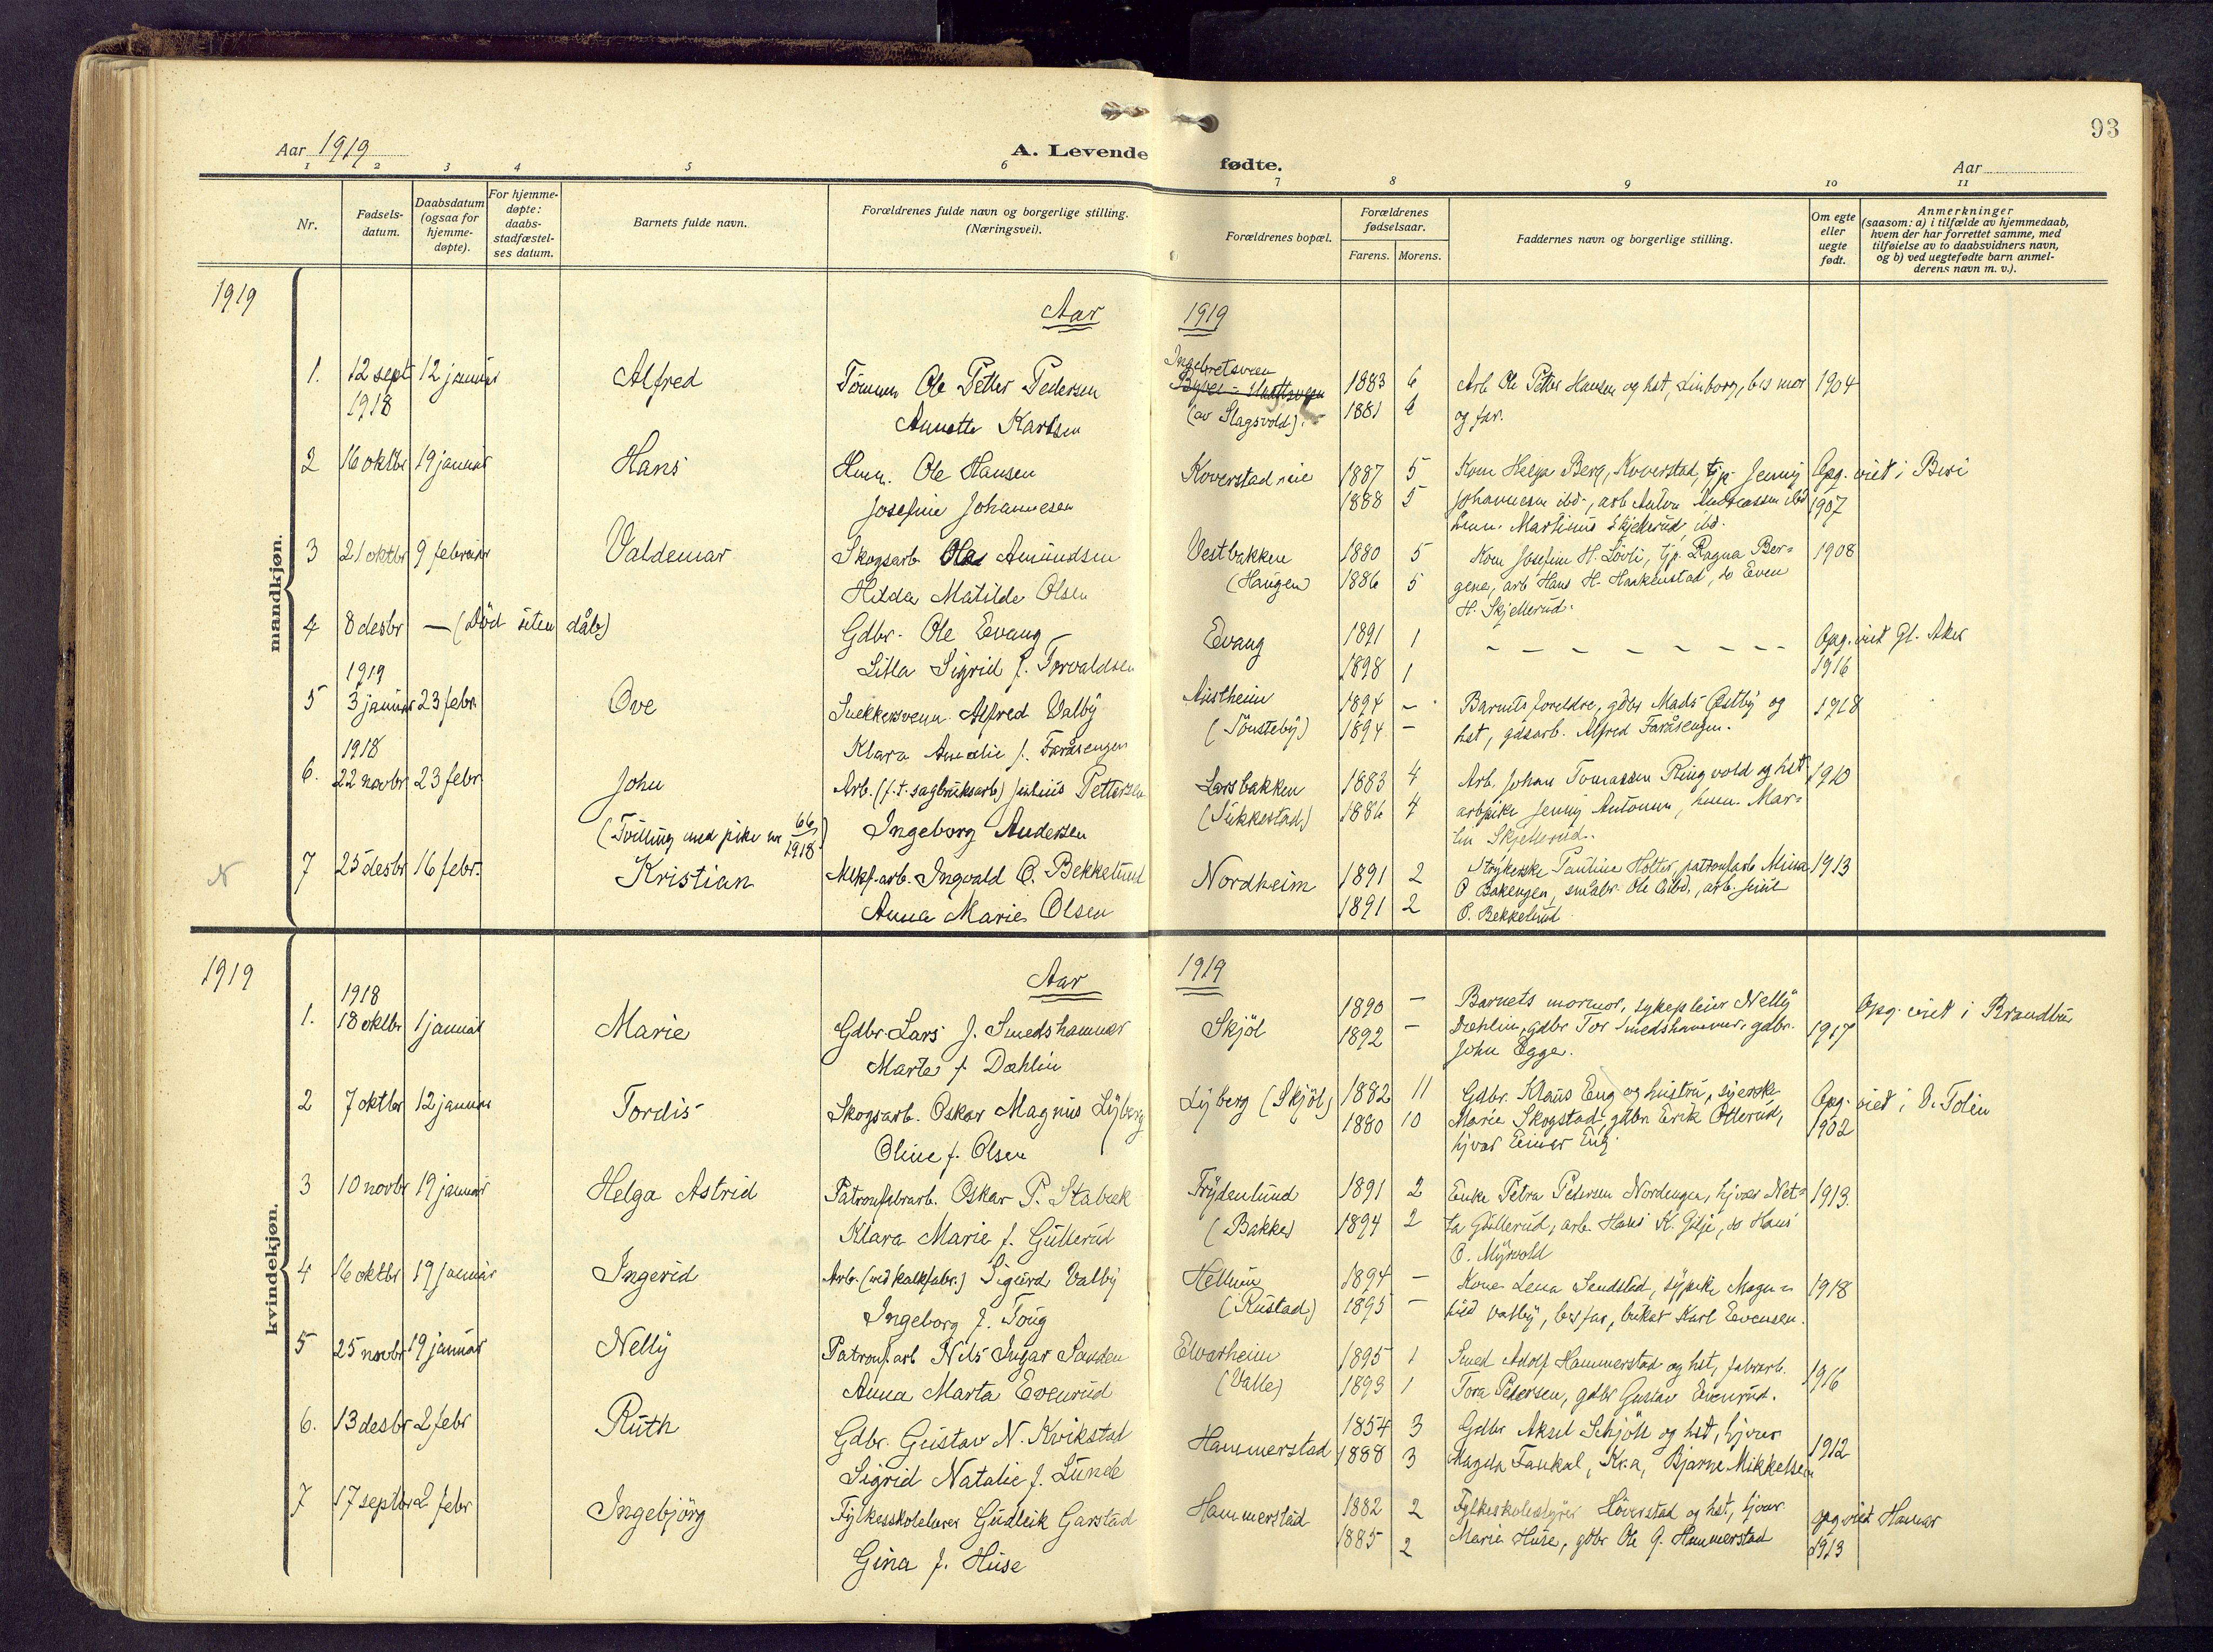 93
Aar 1919
A. Levende fødte.
Aar
1 2 3 4 5 6 7 8 9 10 11
Nr.
Fødsels-
datum.
Daabsdatum
(ogsaa for
hjemme-
døpte).
For hjemme-
døpte:
daabs-
stadfæstel-
ses datum.
Barnets fulde navn.
Forældrenes fulde navn og borgerlige stilling.
(Næringsvei).
Forældrenes bopæl.
Forældrenes
fødselsaar.
Farens. Morens.
Faddernes navn og borgerlige stilling.
Om egte
eller
uegte
født.
Anmerkninger
(saasom: a) i tilfælde av hjemmedaab,
hvem der har forrettet samme, med
tilføielse av to daabsvidners navn,
og b) ved uegtefødte barn anmel-
derens navn m. v.).
mandkjøn.
1919
Aar 1919
1. 12 sept 12 januar Alfred Tömm. Ole Petter Pedersen Ingebretsveen 1883 6 Arb Ole Petter Hansen og hst, Linborg, bes mor 1904
1918 Annette Karlsen (av Slagsvold). 1881 6 og far.
2 16 oktbr 19 januar Hans Hmn. Ole Hansen Koverstad eie 1887 5 Kone Helga Berg, Koverstad, tjp. Jenny Opg. viet i Biri
Josefine Johannesen 1888 5 Johannesen ibd., arb Anton Andreassen ibd 1907
hmn. Martinus Skjellerud, ibd.
3 21 oktbr 9 februar Valdemar Skogsarb. Ole Amundsen Vestbakken 1880 5 Kone Josefine H. Lövli, tjp. Ragna Ber- 1908
Hilda Matilde Olsen (Haugen) 1886 5 gene, arb Hans H. Haakenstad, do Even
H. Skjellerud.
4 8 desbr — (Död uten dåb) Gdbr. Ole Evang Evang 1891 1 - - - - - - - - - Opg. viet Gl. Aker
Lilla Sigrid f. Torvaldsen 1898 1 1916
1919
5 3 januar 23 febr. Ove Snekkersvenn Alfred Valby Austheim 1894 - Barnets foreldre, gdbr Mads Østby og 1918
Klara Amalie f. Faråsengen (Tönsteby) 1894 - hst, gdsarb. Alfred Faråsengen.
1918
6. 22 novbr 23 febr John Arb. (f.t. sagbruksarb) Julius Pettersen Larsbakken 1883 4 Arb. Johan Tomassen Ringvold og hst 1910
(Tvilling med pike nr 66/1918) Ingeborg Andersen (Sukkestad) 1886 4 arbpike Jenny Antonsen, hmn. Mar-
tin Skjellerud.
N 7 25 desbr 16 febr. Kristian Mlkf.arb. Ingvald O. Bekkelund Nordheim 1891 2 Strykerske Pauline Holter, patronfarb Mina 1913
Anna Marie Olsen 1891 2 O Bakengen, småbr. Ole ibd., arb. Juul
O. Bekkelund
kvindekjøn.
1919
Aar 1919
1918
1. 18 oktbr 1 januar Marie Gdbr. Lars J. Smedshammer Skjöl 1890 - Barnets mormor, sykepleier Nelly Opg. viet i Brandbu
Marte f. Dæhlin 1892 - Dæhlin, gdbr Tor Smedshammer, gdbr. 1917
John Egge.
2 7 oktbr 12 januar Tordis Skogsarb. Oskar Magnus Lyberg Lyberg (Skjöl) 1882 11 Gdbr. Klaus Eng og hustru, syerske Opg. viet i V. Toten
Oline f. Olsen 1880 10 Marie Skogstad, gdbr Erik Otterud, 1902
hjvar Einar Eng.
3 10 novbr 19 januar Helga Astrid Patronfabrarb. Oskar P. Stabæk Frydenlund 1891 2 Enke Petra Pedersen Nordengen, hjvær Net- 1913.
Klara Marie f. Gullerud (Bakke) 1894 2 ta Gullerud, arb. Hans K. Gilje, do Hans
O. Myrvold
4 16 oktbr 19 januar Ingerid Arb. (ved kalkfabr.) Sigurd Valby Hellum 1894 - Kone Lena Sandstad, sypike Magn- 1918
Ingeborg f. Toug (Rustad) 1895 - hild Valby, bes far, enker Karl Evensen.
5 25 novbr 19 januar Nelly Patronf.arb Nils Ingar Sanden Elvarheim 1895 1 Smed Adolf Hammerstad og hst, fabrarb. 1916
Anna Marta Evenrud (Valle) 1893 1 Tora Pedersen, gdbr Gustav Evenrud.
6. 13 desbr 2 febr Ruth Gdbr. Gustav N. Kvikstad Hammerstad 1854 3 Gdbr Aksel Schjöll og hst, hjvær 1912
Sigrid Natalie f. Lunde 1888 3 Magda Faukal, Kr.a, Bjarne Mikkelsen
7 17 septbr 2 febr Ingebjörg Fylkesskolelærer Gudleik Garstad Hammerstad 1882 2 Fylkesskolestyrer Höverstad og hst, hjvær Opg. viet Hamar
Gina f. Huse 1885 2 Marie Huse, gdbr Ole G. Hammerstad 1913